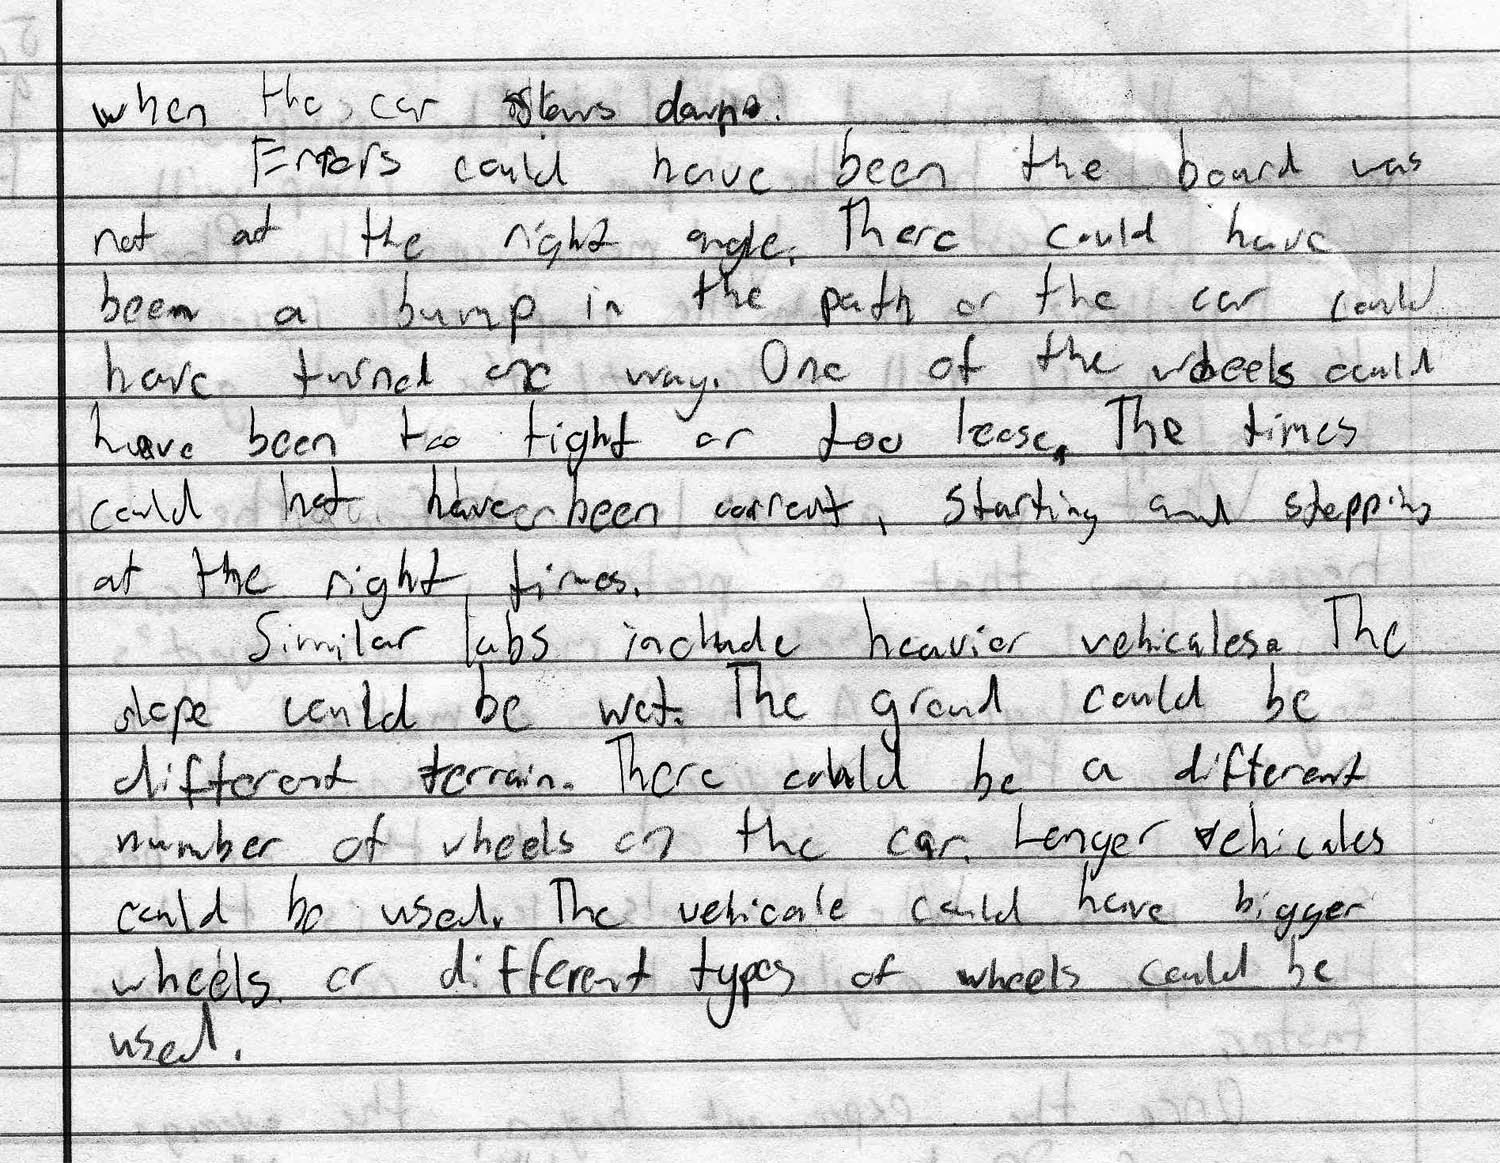 when the car slows down.
Errors could have been the board was
not at the right angle. There could have
been a bump in the path or the car could
have turned one way. One of the wheels could
have been too tight or too loose. The times
could not have been correct, starting and stopping
at the right times.
Similar labs include heavier vehicales. The
slope could be wet. The grond could be
different terrain. There could be a different
number of wheels on the car. Longer vehicales
could be used. The vehicale could have bigger
wheels or different types of wheels could be
used.